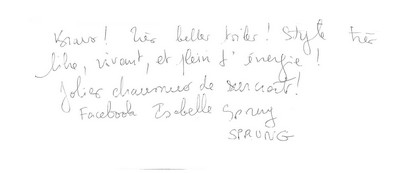 Bravo! Très belles toiles! Style très
libre, vivant, et plein d'énergie!
Jolies chaumes de surcroît!
Facebook Isabelle Sprung
SPRUNG